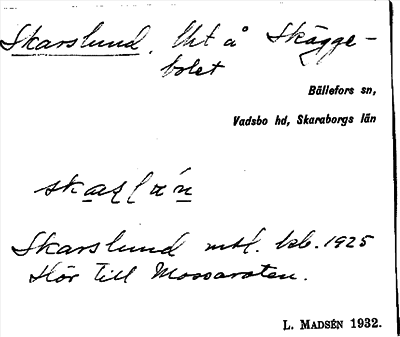 Skarslund. Utt å Skägge-
bolet
Bällefors sn,
Vadsbo hd, Skaraborgs län
Skarslund mtl. kb. 1925
Hör till Mossaroten.
L. MADSÉN 1932.